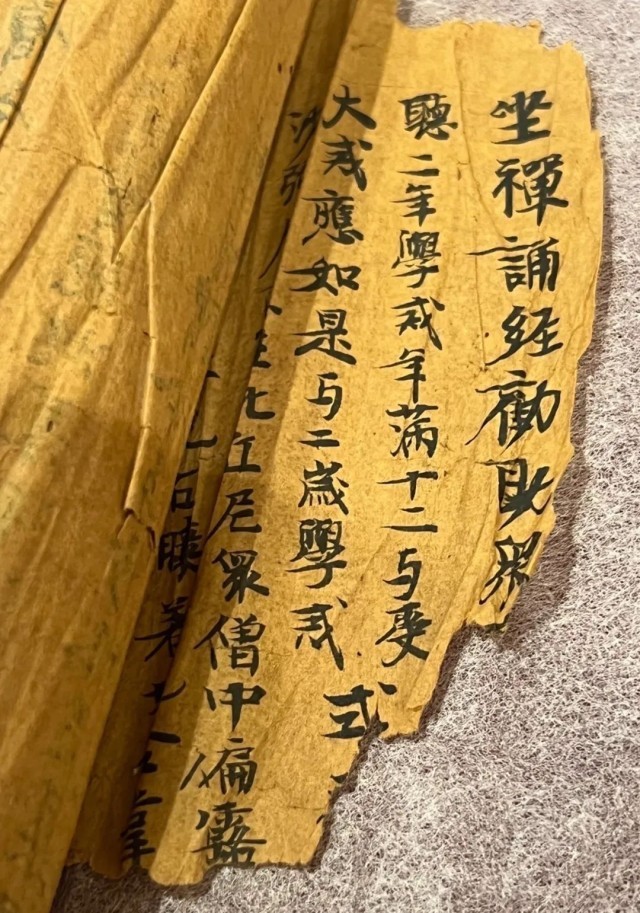 坐禪誦経勸助眾
聽二年學戒年滿十二与受
大戒應如是与二歲學戒式
沙弥往比丘尼眾僧中偏露
右膝著